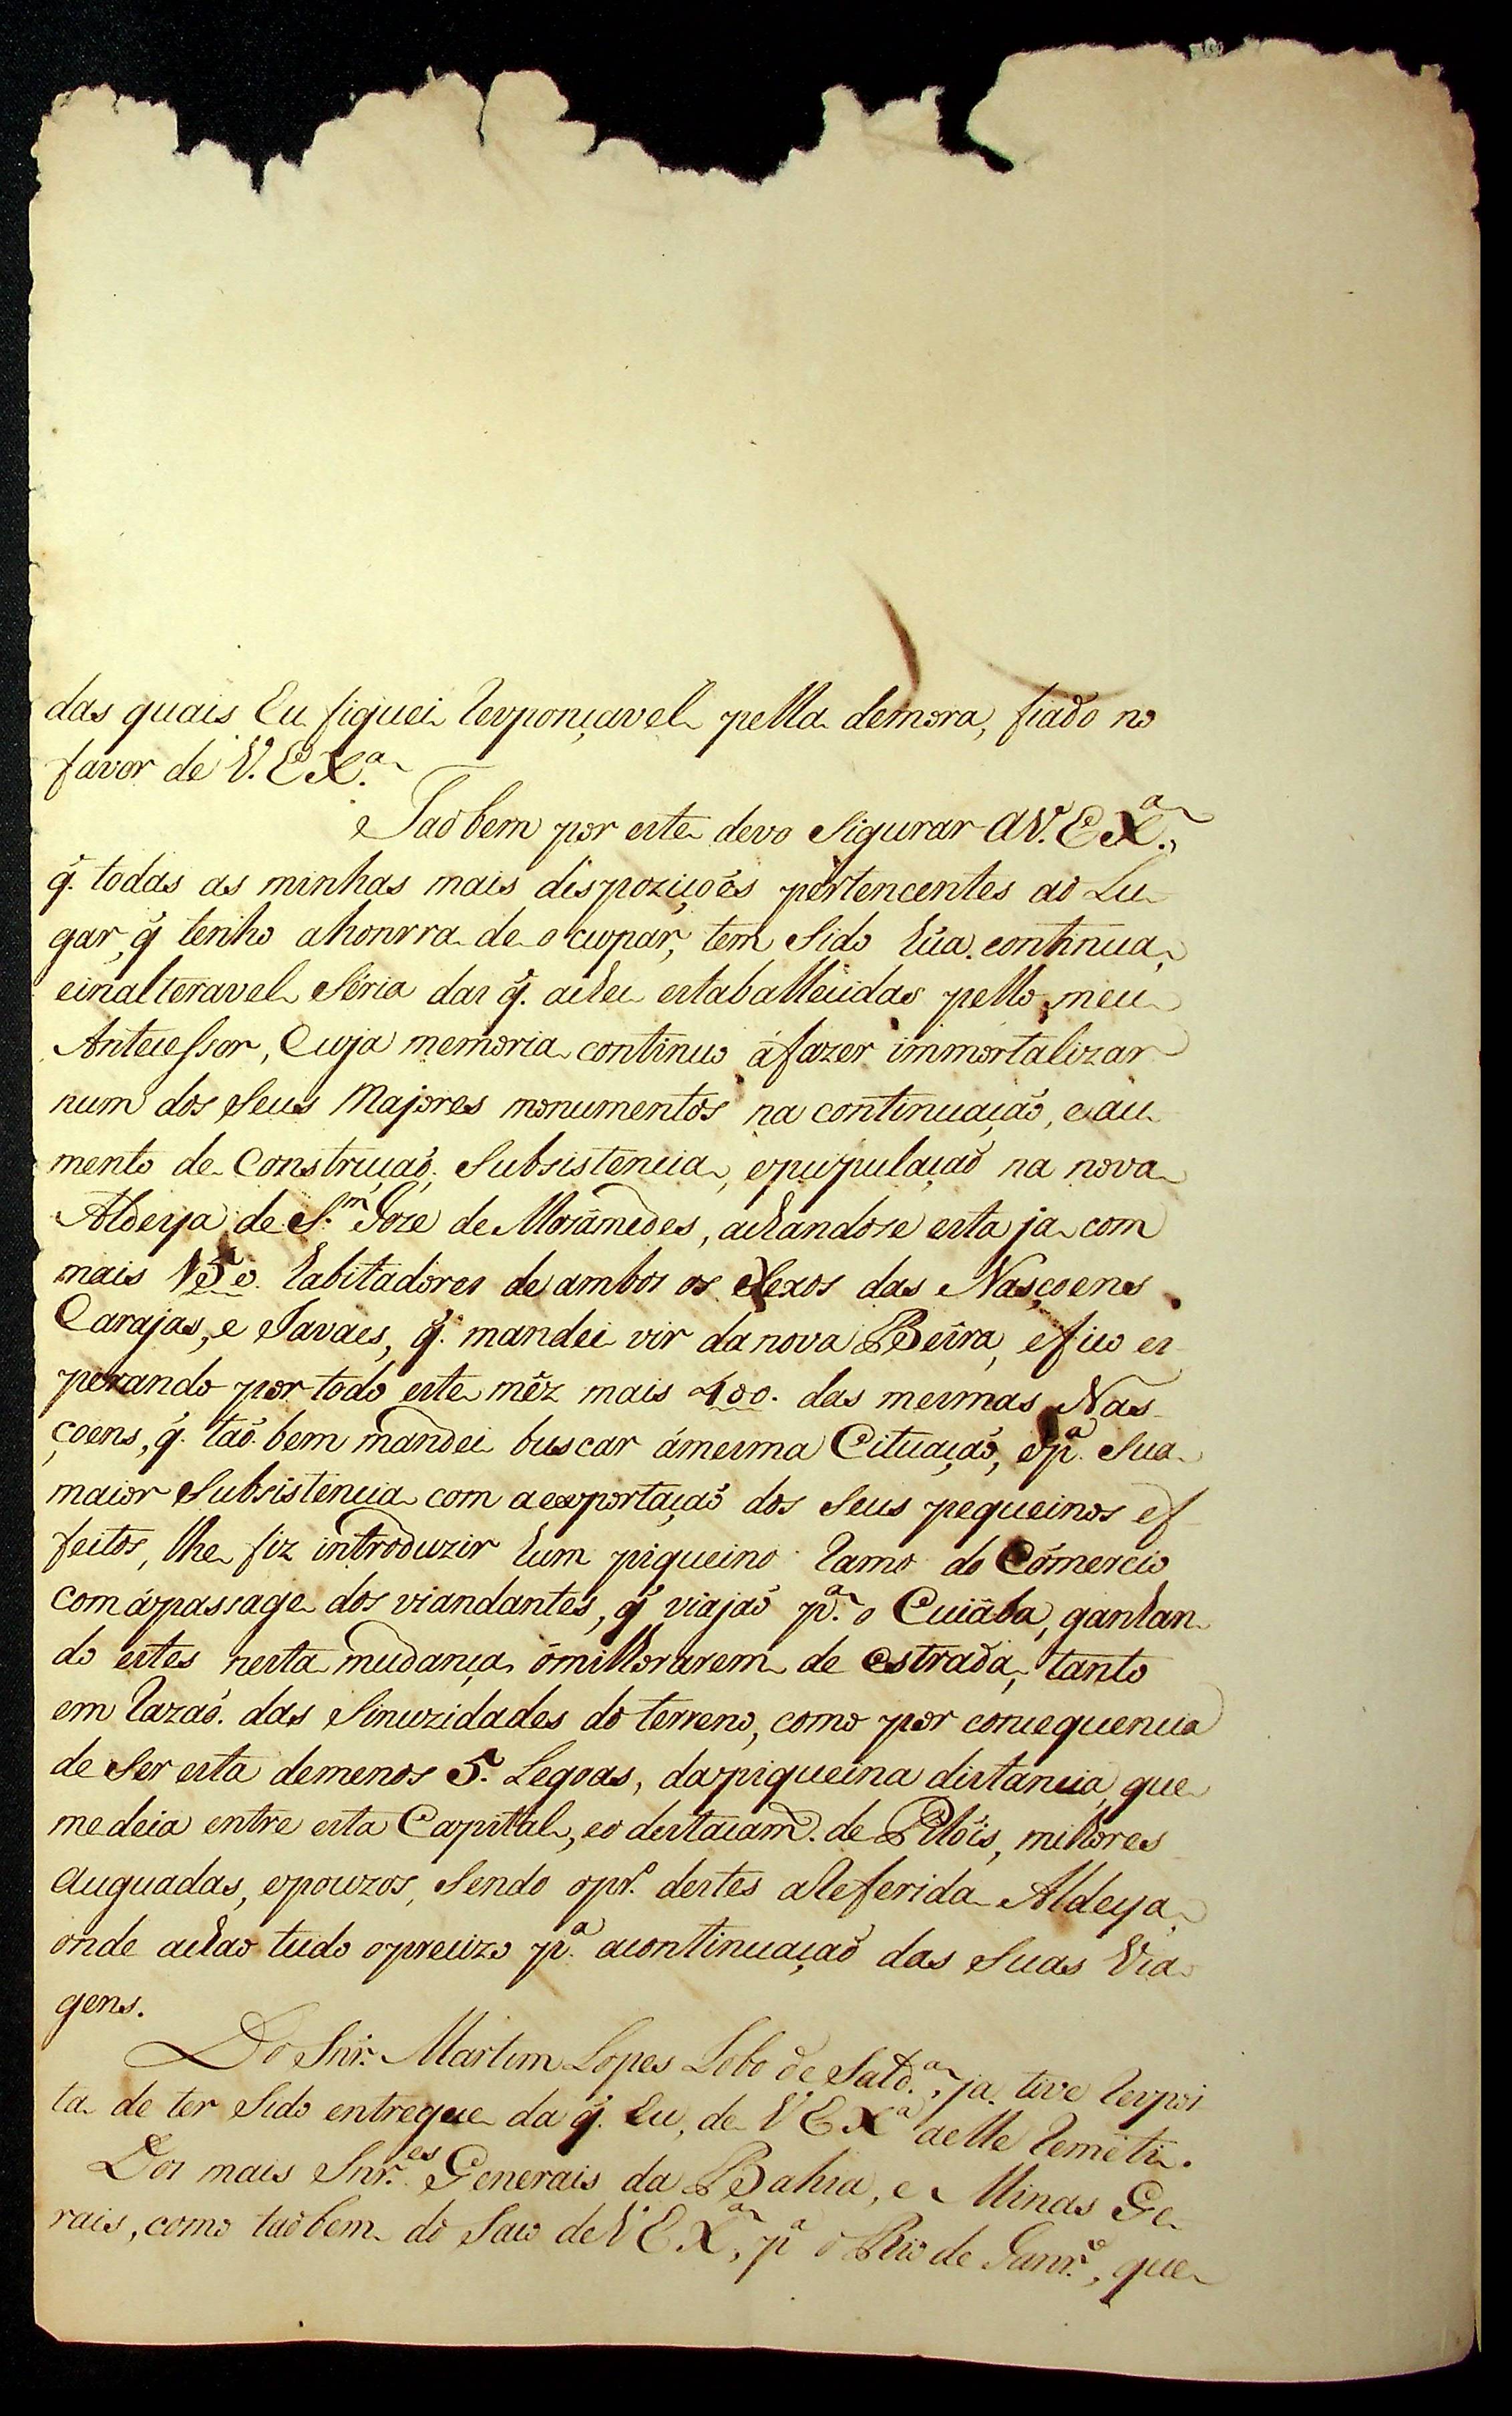 das quais Eu fiquei Responçavel pella demora, fiado no
favor de V. EX.ª
Taõbem por este devo Sigurar a V. EX.ª,
q̃. todas as minhas mais dispoziçoẽs pertencentes ao Lu
gar, q̃ tenho ahonrra de o cupar, tem Sido hũa continua,
einalteravel Séria das q̃. achei estabalecidas pello meu
Antecessor, Cuja memoria continuo áfazer immortalizar
num dos Seus Majores monumentos na continuaçaõ, eau
mento de Construçaõ. Subsistencia, epupulaçaõ na nova
Aldeya de S.m Joze de Mosâmedes, achandose esta ja com
mais 150. habitadores de ambos os Sexos das Nasçoens
Carajas, e Javaes, q̃. mandei vir da nova Beira, efico es
perando por todo este mêz mais 400. das mesmas Nas
çoens, q̃. taõ bem mandei buscar ámesma Cituaçaõ, e p.ª Sua
maior Subsistencia com aexportaçaõ dos Seus pequeinos ef
feitos, lhe fiz introduzir hum piqueino Ramo do Cômercio
com ápassage dos viandantes, q̃ viajaõ p.ª o Cuiâba, ganhan
do estes nesta mudança ómilhorarem de estrada, tanto
em Razaõ. das Sinuzidades do terreno, como por consequencia
de Ser esta demenos 5. Legoas, dapiqueina distancia, que
medeia entre esta Capittal, eo destacam.to de Pilóis, milhores
auguadas, epouzos, Sendo opr.º destes aReferida Aldeya,
onde achaõ tudo opreuizo p.ª acontinuaçaõ das Suas Via
gens.
Do Snr. Martim Lopes Lobo de Sald.ª, ja tive Respos
ta de ter Sido entregue da q̃. Eu, de V EXª aelle Remeti.
Dos mais Snr.es Generais da Bahia, e Minas Ge
rais, como taõbem do Saco de V EX.ª, p.ª o Rio de Janr.º, que